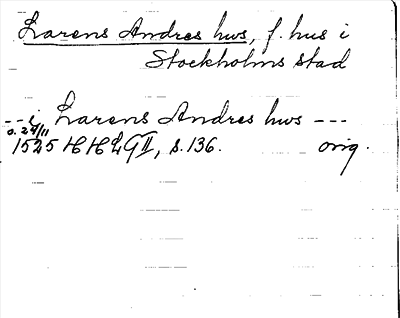 Larens Andres hws, f. hus i
Stockholms stad
--- i Larens Andres hws ---
o. 24/11
1525 HHLG II, s. 136. orig.